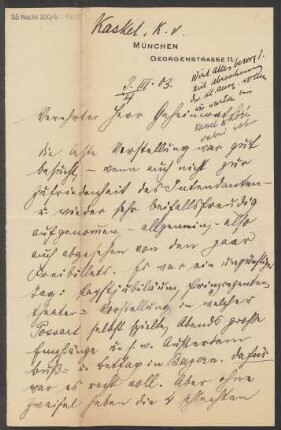 55 Nachl 100/A
Kaskel, K. v.
MÜNCHEN
GEORGENSTRASSE 11.
3. III. 03.
Wird alles besorgt!
mit
wir warten
Kaskel
Verehrter Herr Geheimrath!
Die letzte Vorstellung war gut
besucht, – wenn auch nicht zur
Zufriedenheit des Intendanten –
u. wieder sehr beifallsfreudig
aufgenommen, – allgemein, – also
auch abgesehen von den paar
Freibillets. Es war ein ungünstiger
Tag: Papstjubiläum, Prinzregenten-
theater-Vorstellung in welcher
Possart selbst spielte, Abends große
Empfänge u. s. w. Ausserdem
Buß- u. Bettag in Bayern. Dafür
war es recht voll. Aber ohne
Zweifel haben die 4 schlechten